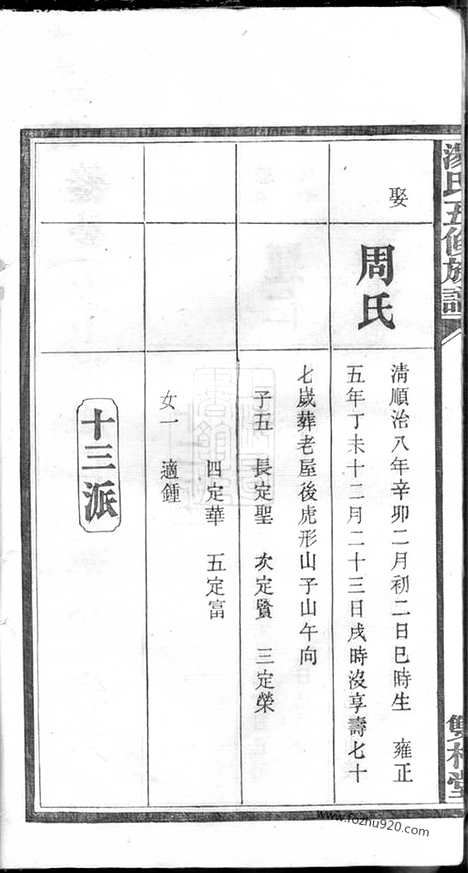 湯氏五修族譜
雙桂堂
娶
周氏
清順治八年辛卯二月初二日巳時生 雍正
五年丁未十二月二十三日戌時沒享壽七十
七歲葬老屋後虎形山子山午向
子五 長定聖 次定賢 三定榮
四定華 五定富
女一 適鍾
十三派
www.fozhu920.com